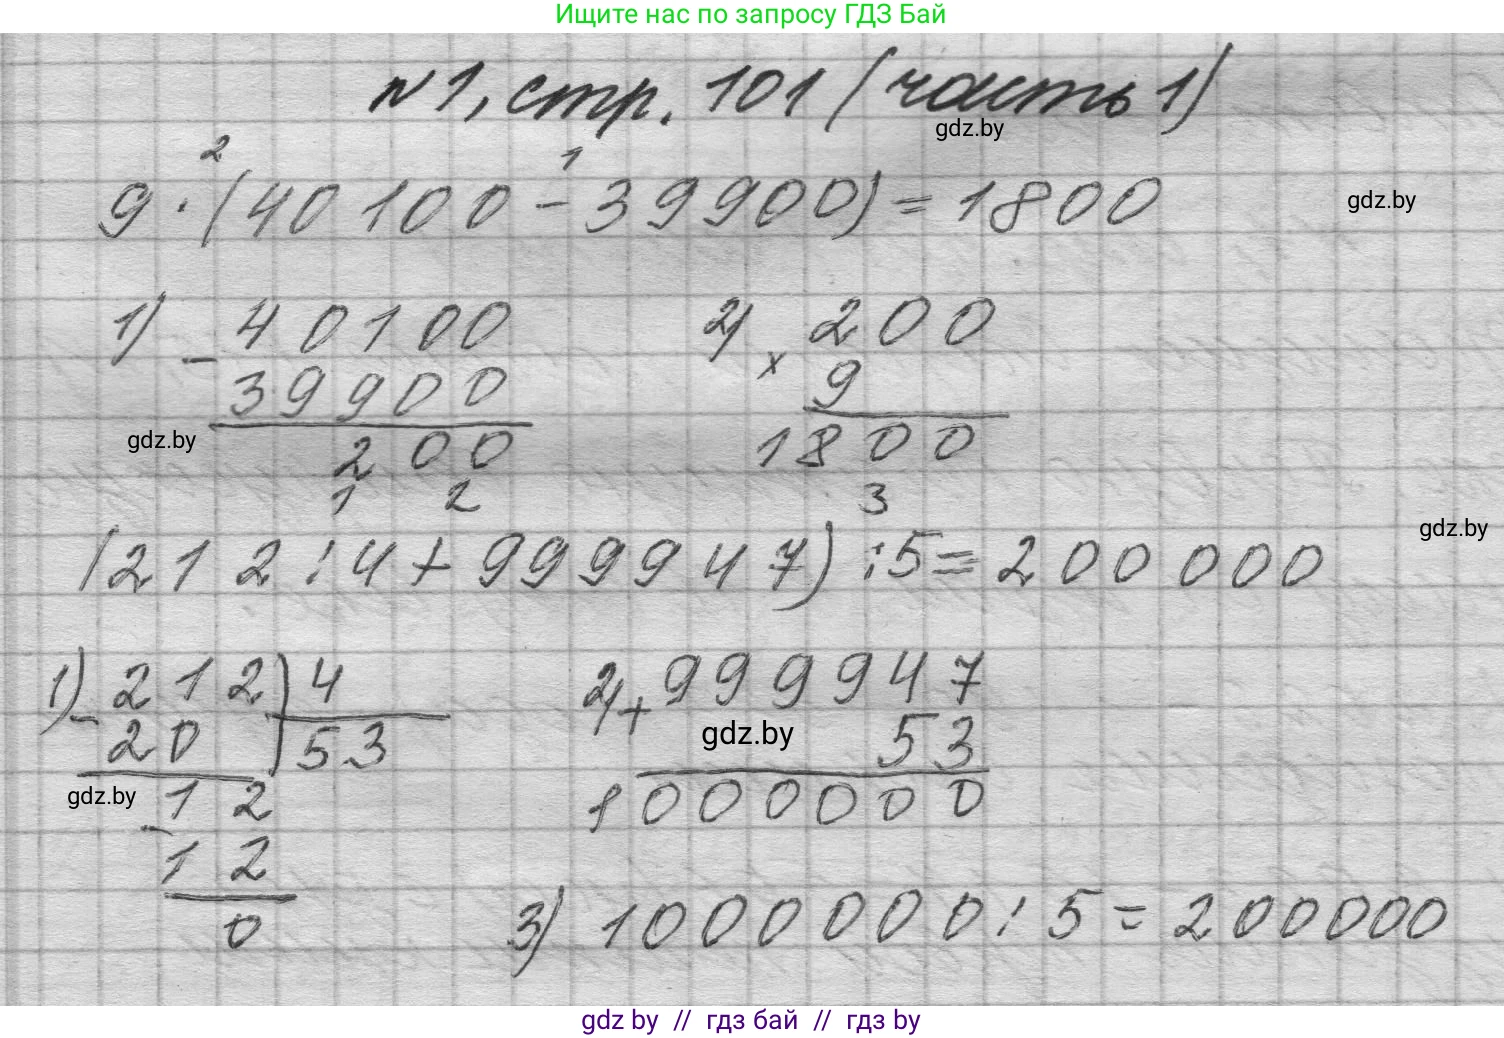 Ищите нас по запросу ГДЗ Бай
№1, стр. 101 (часть 1)
gdz.by
2 1
9 · (40100 - 39900) = 1800
gdz.by
1) - 40100
39900
200
gdz.by
2) x 200
9
1800
1 2 3
gdz.by
(212 : 4 + 999947) : 5 = 200000
1) - 212 4
20 53
gdz.by
- 12
12
0
2) + 999947
gdz.by
53
1000000
3) 1000000 : 5 = 200000
gdz by // гдз бай // гдз by